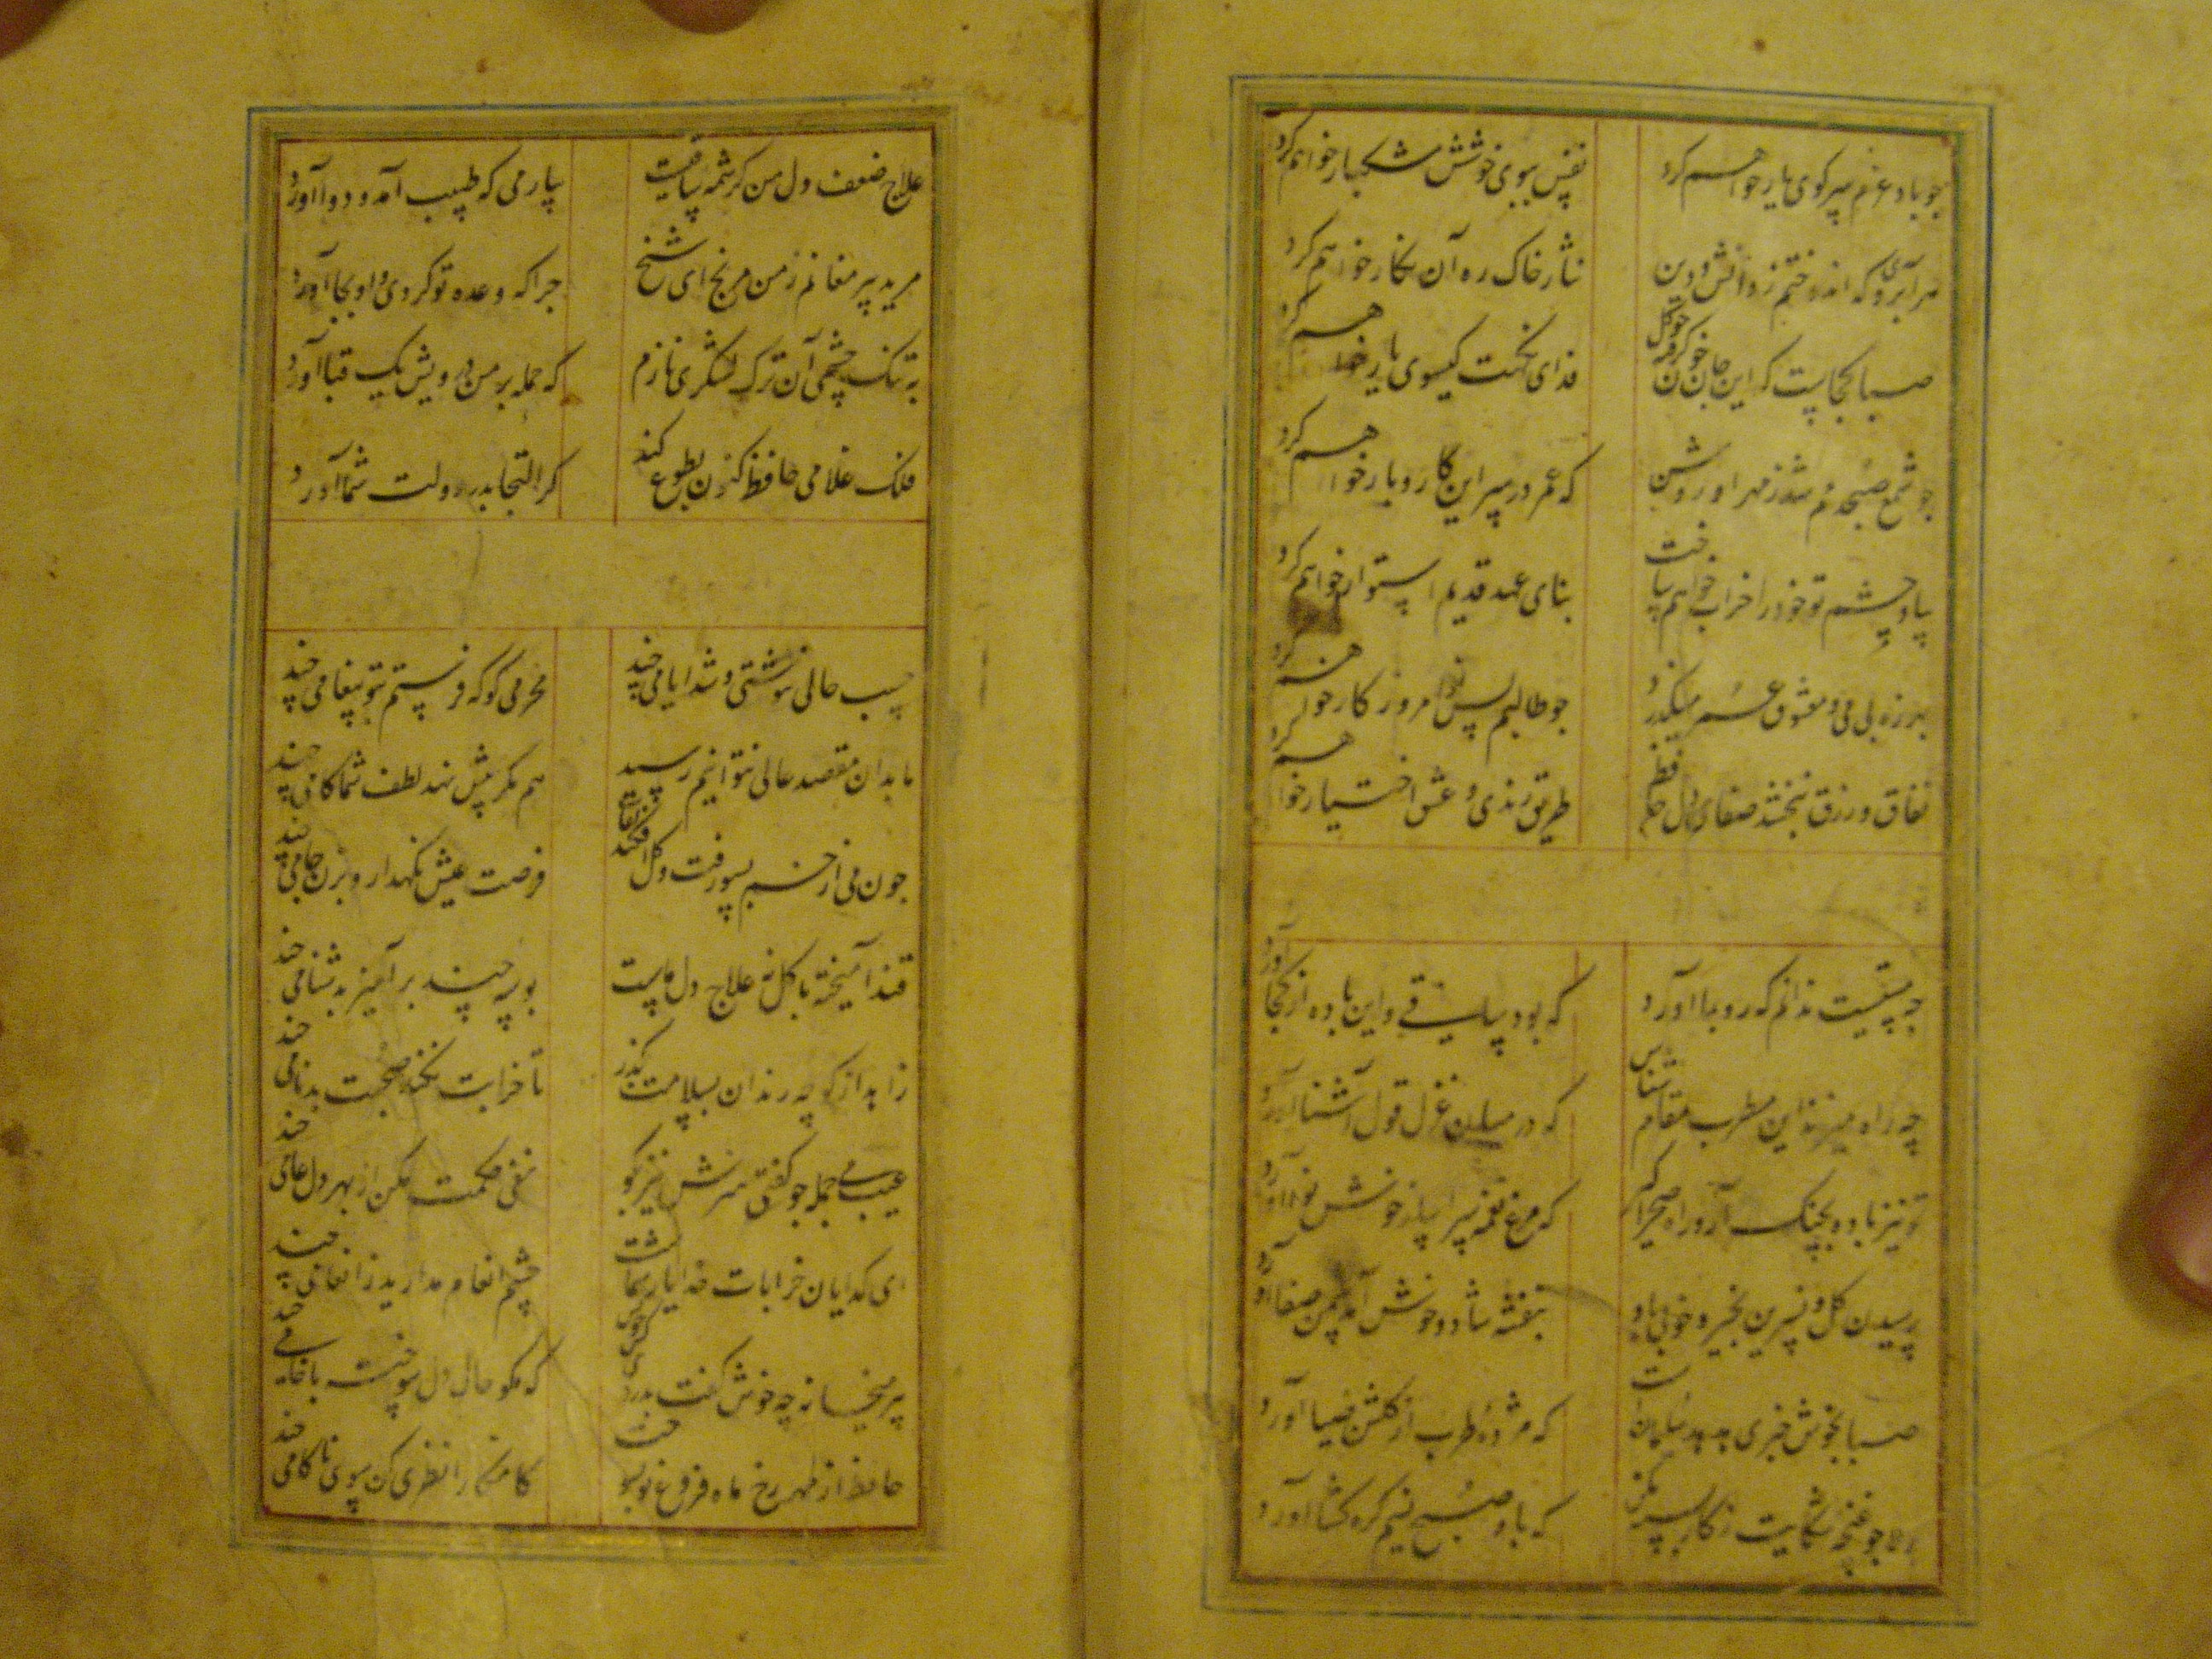 چو باد عزم سر کوی یار خواهم کرد نفس ببوی خوشش مشکبار خواهم کرد
هر آبروی که اندوختم ز دانش و دین نثار خاک ره آن نکار خواهم کرد
صبا کجاست که این جان خون گرفته چو گل فدای نکهت کیسوی یار خواهم کرد
چو شمع صبحدمم شد ز مهر او روشن که عمر در سر این کار و بار خواهم کرد
بیاد چشم تو خود را خراب خواهم ساخت بنای عهد قدیم استوار خواهم کرد
بهرزه بی می و معشوق عمر میکذرد جو طالبم پس از امروز کار خواهم کرد
نفاق و زرق نبخشد صفای دل حافظ طریق رندی و عشق اختیار خواهم کرد
چه مستیست ندانم که رو بما آورد که بود ساقی و این باده از کجا آورد
چه راه میزند این مطرب مقام شناس که در میان غزل قول آشنا آورد
تو نیز باده بچنک آر و راه صحرا کیر که مرغ نغمه سرا ساز خوش نوا آورد
رسیدن کل و نسرین بخیر و خوبی باد بنفشه شاد و خوش آمد سمن صفا آورد
صبا بخوش خبری هدهد سلیمانست که مژده طرب از کلشن سبا آورد
دلا جو غنچه شکایت ز کار بسته مکن که باد صبح نسیم کره کشا آورد
علاج ضعف دل من کرشمه ساقیست بیار می که طبیب آمد و دوا آورد
مرید پیر مغانم ز من مرنج ای شیخ جرا که وعده تو کردی و او بجا آورد
به تنک چشمی آن ترک لشکری نازم که حمله بر من درویش یک قبا آورد
فلک غلامی حافظ کنون بطوع کند که التجا بدر دولت شما آورد
حسب حالی ننوشتی و شد ایامی چند محرمی کو که فرستم بتو پیغامی چند
ما بدان مقصد عالی نتوانیم رسید هم مکر پیش نهد لطف شما کامی چند
جون می از خم بسبو رفت و کل افکند نقاب فرصت عیش نکهدار و بزن جامی چند
قند آمیخته با کل نه علاج دل ماست بوسه چند بر آمیز به دشنامی چند
زاهد از کوچه رندان بسلامت بکذر تا خرابت نکند صحبت بدنامی چند
عیب می جمله جو کفتی هنرش نیز بکو نفی حکمت مکن از بهر دل عامی چند
ای کدایان خرابات خدا یار شماست چشم انعام مدارید ز انعامی چند
پیر میخانه چه خوش کفت بدردی کش خویش که مکو حال دل سوخته با خامی چند
حافظ از مهر رخ ماه فروغ تو بسوخت کامکارا نظری کن سوی ناکامی چند